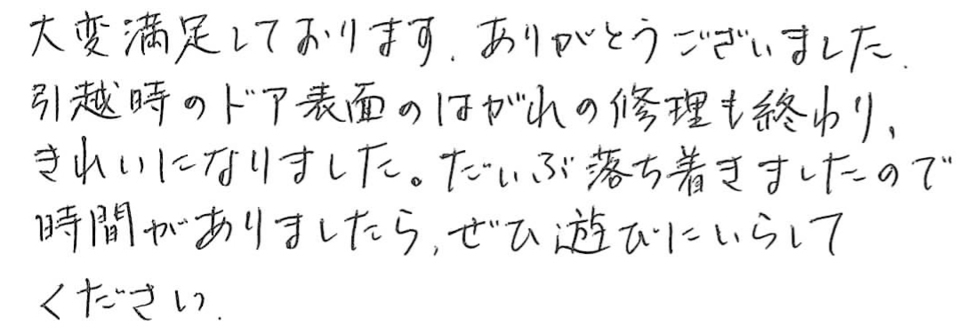 大変満足しております. ありがとうございました.
引越時のドア表面のはがれの修理も終わり、
きれいになりました。だいぶ落ち着きましたので
時間がありましたら, ぜひ遊びにいらして
ください.